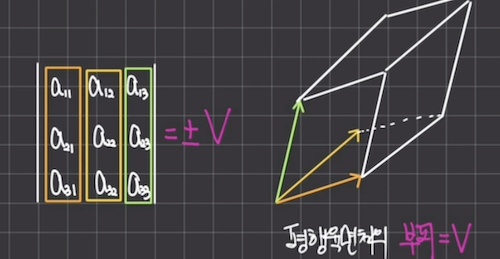 a₁₁ a₁₂ a₁₃
a₂₁ a₂₂ a₂₃ = ± V
a₃₁ a₃₂ a₃₃
평행육면체의 부피 = V